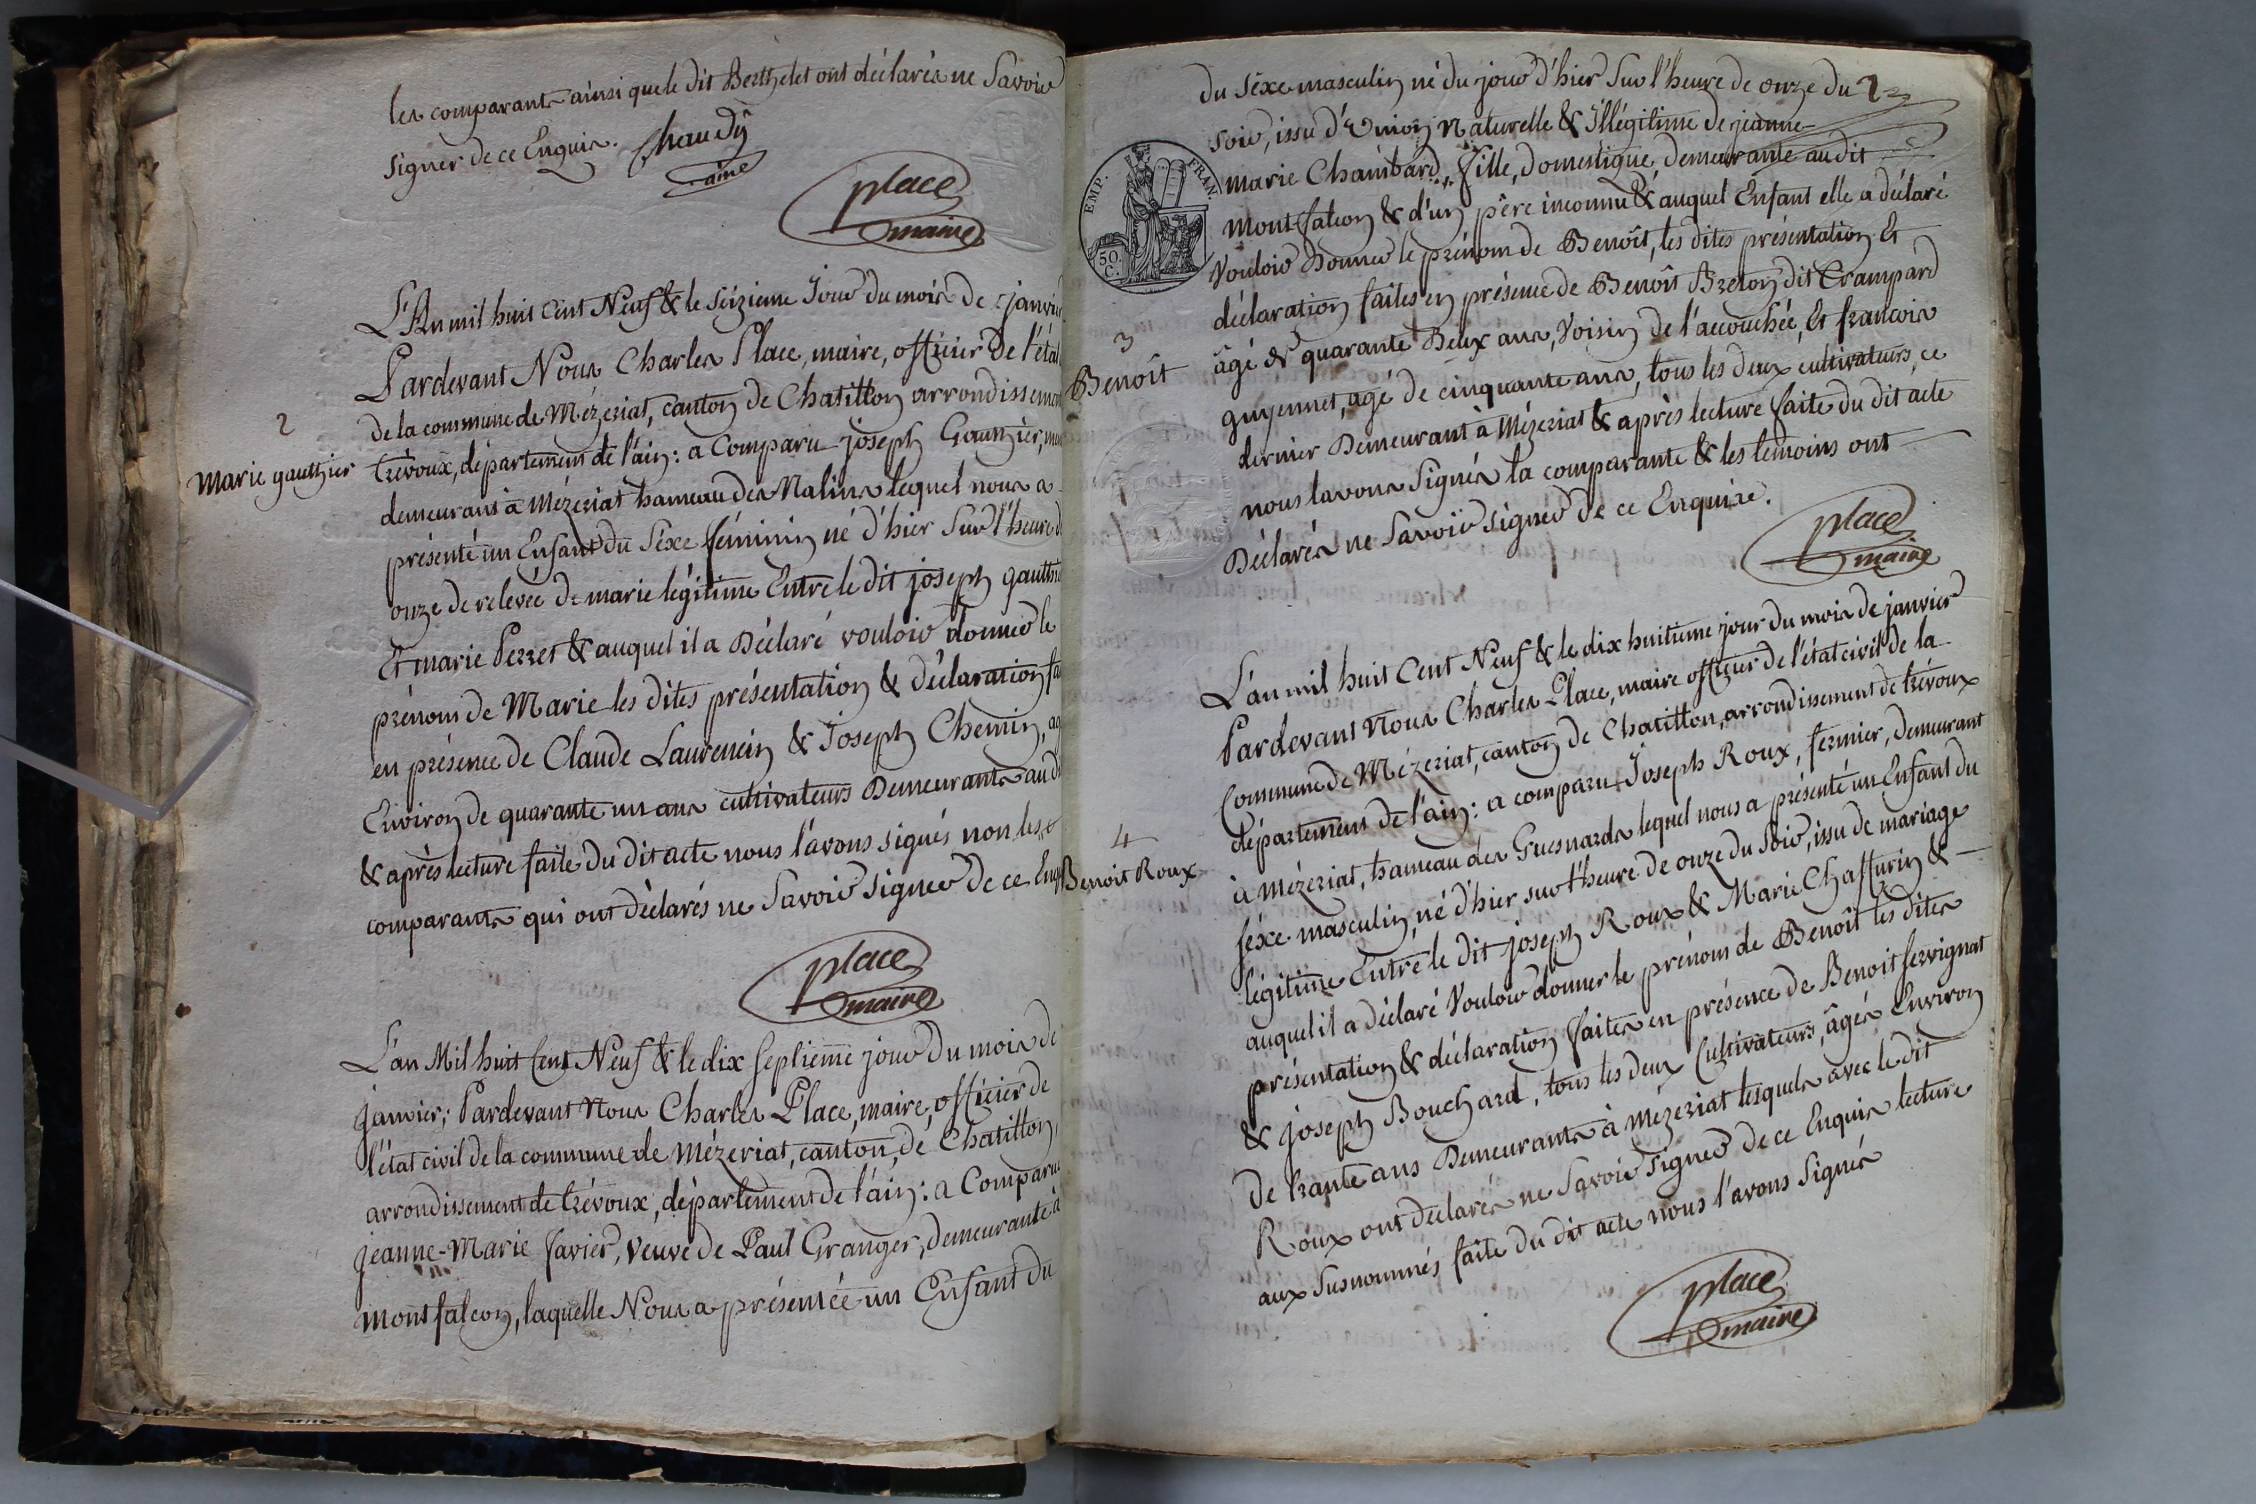 les comparants ainsi que le dit Berthelet ont déclarés ne Savoir
signer de ce Enquis. Chaudy
ainé
place
maire
L'An mil huit Cent Neuf & le Seizieme Jour du mois de janvier
Pardevant Nous Charles Place, maire, officier De l'état
de la commune de Mézeriat, canton de Chatillon arrondissement
2
Marie gauthier
trévoux, département de l'ain: a Comparu joseph Gauthier,
demeurant à Mézeriat hameau des Nalins lequel nous a
présenté un Enfant du Séxe féminin né d'hier Sur l'heure de
onze de relevée de marie légitime Entre le dit joseph gauthier
Et marie Perret & auquel il a Déclaré vouloir donner le
prénom de Marie les dites présentation & déclaration
en présence de Claude Laurencin & Joseph Chemin,
Environ de quarante un ans cultivateurs Demeurants au
& après lecture faite du dit acte nous l'avons signés non les
comparants qui ont déclarés ne Savoir signer de ce Enquis
place
maire
L'an Mil huit Cent Neuf & le dix Septieme jour du mois de
janvier; Pardevant Nous Charles Place, maire, officier de
l'état civil de la commune de Mézeriat, canton, de Chatillon,
arrondissement de trévoux, département de l'ain: a Comparue
jeanne-Marie favier, Veuve de Paul Granger, demeurante à
montfalcon, laquelle Nous a présentée un Enfant du
du Séxe masculin né du jour d'hier Sur l'heure de onze du
Soir, issu d'Union Naturelle & Illégitime De jeanne
EMP. FRAN.
50.
C.
marie Chambard, fille, domestique, demeurante audit
montfalcon & d'un père inconnu & auquel Enfant elle a déclaré
Vouloir Donner le prénom de Benoît, les dites présentation Et
déclaration faites en présence de Benoît Breton dit Crampard
3
Benoît
âgé de quarante Deux ans, Voisin de l'accouchée, Et francois
guyennet, agé de cinquante ans, tous les deux cultivateurs, ce
dernier Demeurant à Mézeriat & après lecture faite du dit acte
nous lavons Signés la comparante & les temoins ont
Déclarés ne Savoir signer de ce Enquise.
place
maire
L'an mil huit Cent Neuf & le dix huitieme jour du mois de janvier
Pardevant Nous Charles Place, maire officier de l'état civil de la
Commune de Mézeriat, canton de Chatillon, arrondissement de trévoux
département de l'ain: a comparu Joseph Roux, fermier, demeurant
4
Benoit Roux
à Mézeriat, hameau des Guesnards lequel nous a présenté un Enfant du
séxe masculin, né d'hier sur l'heure de onze du Soir, issu de mariage
légitime Entre le dit joseph Roux & Marie Chaffurin &
auquel il a déclaré Vouloir donner le prénom de Benoît les dites
présentation & déclaration faites en présence de Benoit fervignat
& joseph Bouchard, tous les deux Cultivateurs, âgés Environ
de trante ans Demeurants à Mézeriat lesquels avec le dit
Roux ont declarés ne Savoir Signer de ce Enquis lecture
aux susnommés faite du dit acte nous l'avons Signés
place
maire